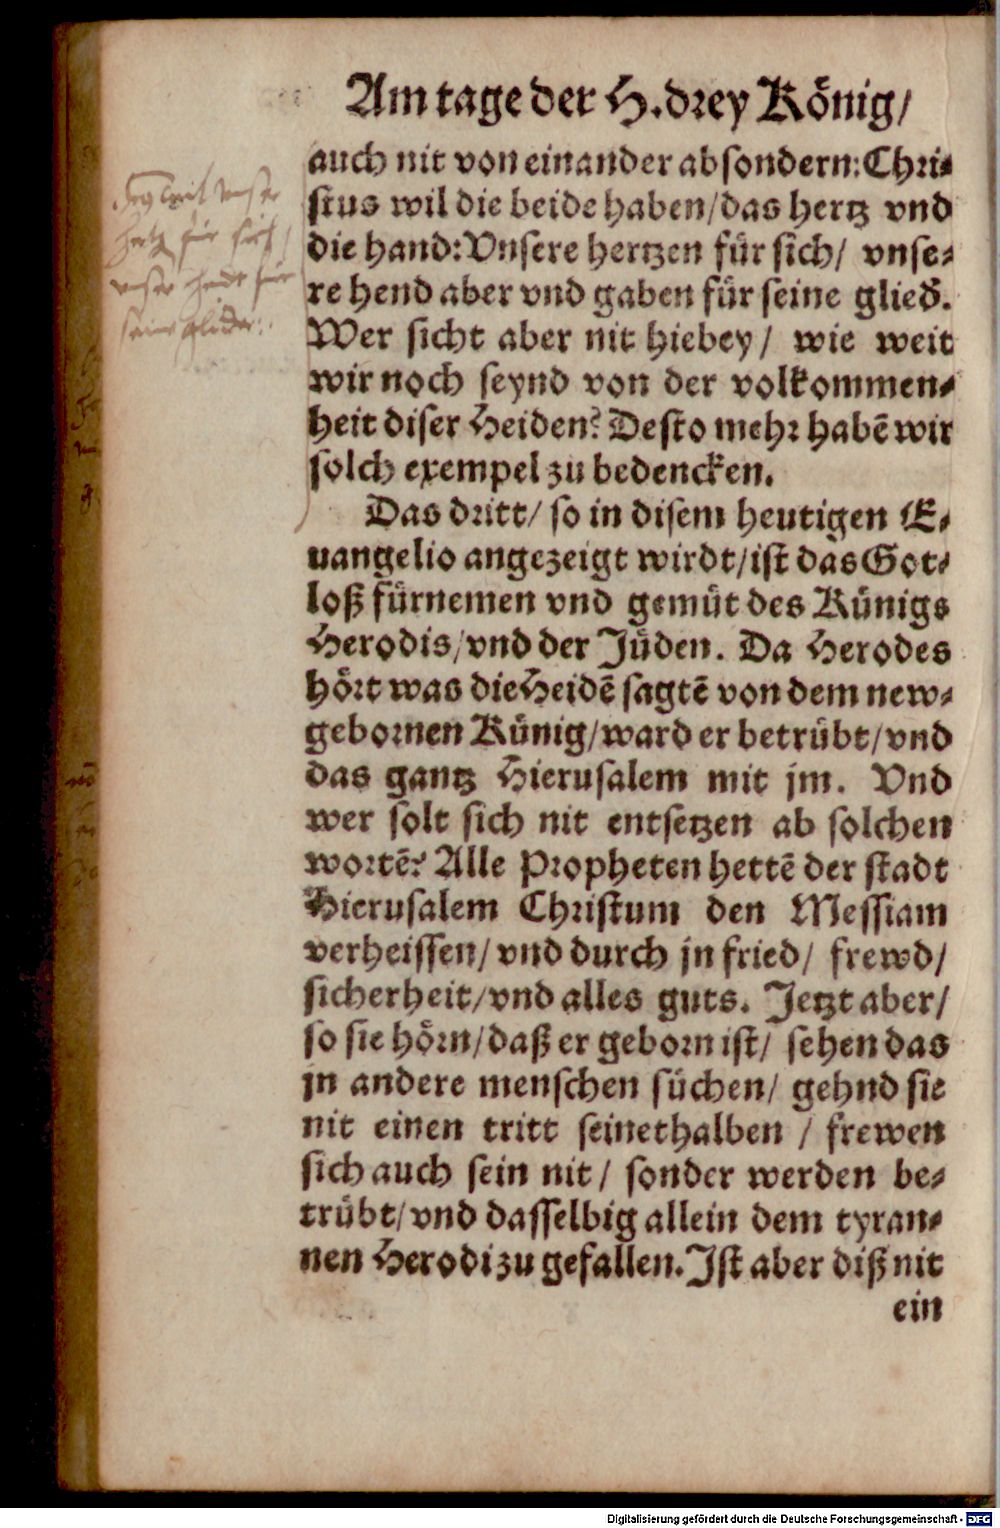 Am tage der H. drey König/
auch nit von einander absondern: Chri-
stus wil die beide haben/das hertz vnd
die hand: Vnsere hertzen für sich/ vnse-
re hend aber vnd gaben für seine glied.
Wer sicht aber nit hiebey/ wie weit
wir noch seynd von der volkommen-
heit diser Heiden? Desto mehr habē wir
solch exempel zu bedencken.
Das dritt/ so in disem heutigen E-
uangelio angezeigt wirdt/ist das Got-
loß fürnemen vnd gemüt des Künigs
Herodis/vnd der Jüden. Da Herodes
hört was die Heidē sagtē von dem new-
gebornen Künig/ward er betrübt/vnd
das gantz Hierusalem mit jm. Vnd
wer solt sich nit entsetzen ab solchen
wortē? Alle Propheten hettē der stadt
Hierusalem Christum den Messiam
verheissen/vnd durch jn fried/ frewd/
sicherheit/vnd alles guts. Jetzt aber/
so sie hörn/daß er geborn ist/ sehen das
jn andere menschen süchen/ gehnd sie
nit einen tritt seinethalben / frewen
sich auch sein nit/ sonder werden be-
trübt/vnd dasselbig allein dem tyran-
nen Herodi zu gefallen. Ist aber diß nit
ein
wil vnser
hertz für sich/
vnser hende für
seine glider.
Digitalisierung gefördert durch die Deutsche Forschungsgemeinschaft - DFG